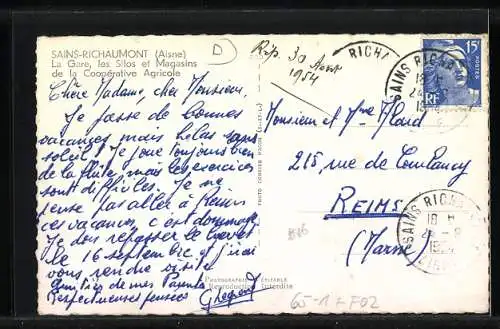 SAINS-RICHAUMONT (Aisne)
La Gare, les Silos et Magasins
de la Coopérative Agricole
D
Rép. 30 Aout
1954
Chère Madame, cher Monsieur,
Je passe de bonnes
vacances mais helas sans
soleil! Je joue toujours bien
de la flute, mais les exercices
sont difficiles. Je ne
pense pas aller à Reims
ces vacances, c'est dommage,
Je dois repasser le brevet
le 16 septembre et j'irai
vous rendre visite
Amitiés de mes Parents
Respectueuses pensées
15F
POSTES
RF
RICHA
SAINS RICH
18 H
Monsieur et Mme
215, rue de
REIMS
(Marne)
SAINS RICH
18 H
24-8
Reproduction interdite
65-1